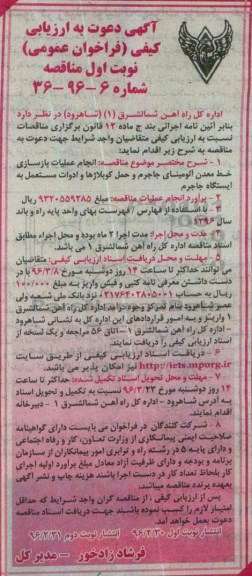 آگهی دعوت به ارزیابی
کیفی (فراخوان عمومی)
نوبت اول مناقصه
شماره ۶-۹۶-۳۶
اداره کل راه آهن شمالشرق (۱) (شاهرود) در نظر دارد
بنابر آئین نامه اجرائی بند ج ماده ۱۲ قانون برگزاری مناقصات
نسبت به ارزیابی کیفی متقاضیان واجد شرایط جهت دعوت به
مناقصه به شرح زیر اقدام نماید:
۱- شرح مختصر موضوع مناقصه: انجام عملیات بازسازی
خط معدن آلومینای جاجرم و حمل کوبلاژها و ادوات مستعمل به
ایستگاه جاجرم
۲- برآورد انجام عملیات مناقصه: مبلغ ۹۳۲۰۵۵۹۲۸۵ ریال
۳- با استفاده از فهارس / فهرست بهای واحد پایه راه و باند
سال ۱۳۹۶
۴- مدت و محل اجرا: مدت اجرا ۲ ماه بوده و محل اجراء مطابق
اسناد مناقصه اداره کل راه آهن شمالشرق ۱ می باشد.
۵- مهلت و محل دریافت اسناد ارزیابی کیفی: متقاضیان
می توانند حداکثر تا ساعت ۱۴ روز دوشنبه مورخ ۹۶/۳/۸ با در
دست داشتن معرفی نامه کتبی و فیش واریز به مبلغ ۱۰۰/۰۰۰
ریال به حساب ۲۱۷۶۴۰۲۸۰۵۰۰۱ نزد بانک ملی شعبه ولی
عصر شاهرود بنام تمرکز وجوه درآمد اداره کل راه آهن شمالشرق
۱ واریز و به امور قراردادهای این اداره کل به نشانی شاهرود
- اداره کل راه آهن شمالشرق ۱- اتاق ۵۶ مراجعه و یک نسخه از
اسناد ارزیابی کیفی را دریافت نمایند.
۶- دریافت اسناد ارزیابی کیفی از طریق سایت
http://iets.mporg.ir نیز امکان پذیر می باشد.
۷- مهلت و محل تحویل اسناد تکمیل شده: حداکثر تا ساعت
۱۴ روز دوشنبه مورخ ۹۶/۳/۲۲ نسبت به تکمیل و تحویل اسناد
به آدرس شاهرود - اداره کل راه آهن شمالشرق ۱ - دبیرخانه
اقدام نمایند.
۸- شرکت کنندگان در فراخوان می بایست دارای گواهینامه
صلاحیت ایمنی پیمانکاری از وزارت تعاون، کار و رفاه اجتماعی
و دارای پایه ۵ در رشته راه و ترابری امور پیمانکاران از سازمان
برنامه و بودجه و دارای ظرفیت آزاد معادل مبلغ برآورد اولیه اجرای
کار بلحاظ تعداد کار در دست اجرا باشند هزینه چاپ و نشر آگهی
بعهده برنده مناقصه میباشد.
پس از ارزیابی کیفی، از مناقصه گران واجد شرایط که حداقل
امتیاز لازم را کسب نموده باشند جهت دریافت اسناد مناقصه
دعوت بعمل خواهد آمد.
انتشار نوبت اول ۹۶/۲/۳۰ انتشار نوبت دوم ۹۶/۲/۳۱
فرشاد زادخور - مدیر کل